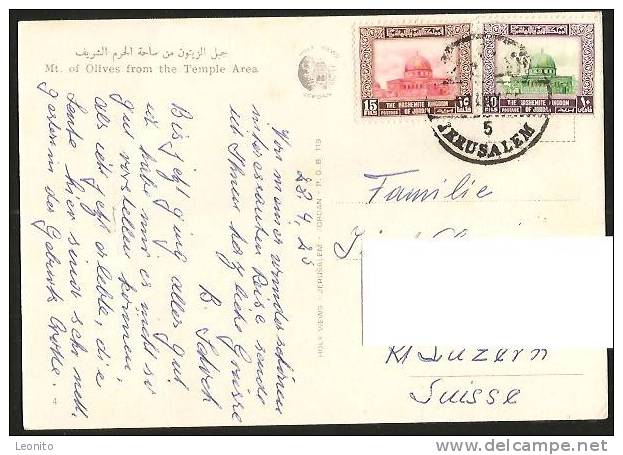 جبل الزيتون من ساحة الحرم الشريف
Mt. of Olives from the Temple Area
HOLY VIEWS
15
FILS
THE HASHEMITE KINGDOM
OF JORDAN
POSTAGE
١٥
فلس
10
FILS
THE HASHEMITE KINGDOM
OF JORDAN
POSTAGE
١٠
5
JERUSALEM
HOLY VIEWS - JERUSALEM - JORDAN - P.O.B. 119
Von meiner wunderschönen
interessanten Reise sendet
ich Ihnen herzliche Grüsse
Bis jetzt ging alles gut
ich habe mir es nicht so
gut vorstellen können,
als ich jetzt erlebte, die
Leute hier sind sehr nett.
Familie
Kt Luzern
Suisse
4
Leonito
www.delcampe.net